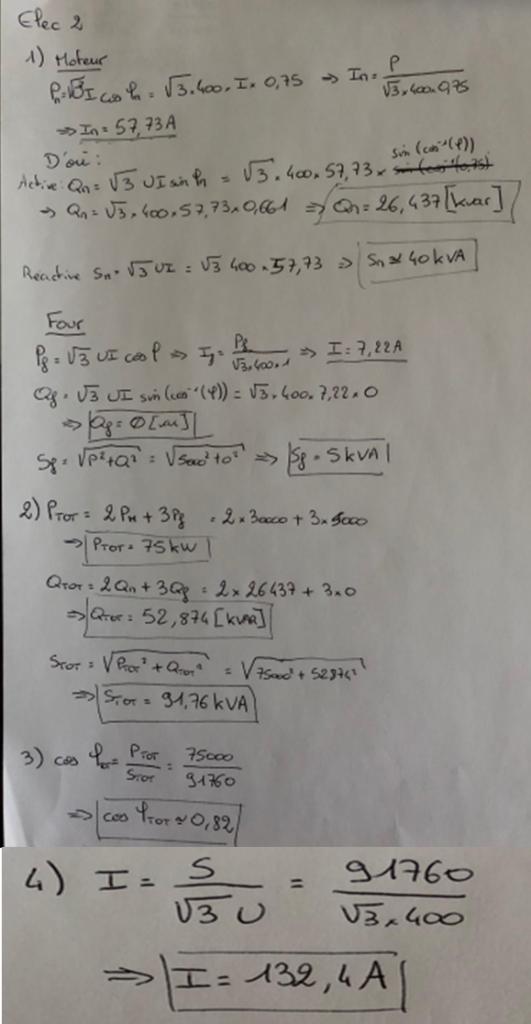 Elec 2
1) Moteur
Pₙ=√3UI cos φₙ = √3.400.I × 0,75 ⇒ Iₙ = P / √3×400×0,75
⇒ Iₙ = 57,73A
D'où :
Active: Qₙ = √3 UI sin φₙ = √3 × 400 × 57,73 × sin (cos⁻¹(φ)) sin (cos⁻¹(0,75)
⇒ Qₙ = √3 × 400 × 57,73 × 0,661 ⇒ Qₙ = 26,437 [kvar]
Reactive Sₙ = √3 UI = √3 400 × 57,73 ⇒ Sₙ ≈ 40 kVA
Four
Pg = √3 UI cos φ ⇒ Ig = Pg / √3×400×1 ⇒ I = 7,22A
Qg = √3 UI sin (cos⁻¹(φ)) = √3.400.7,22 × 0
⇒ Qg = 0 [var]
Sg = √P²+Q² = √5000²+0² ⇒ Sg = 5 kVA
2) PTOT = 2PM + 3Pg = 2 × 30000 + 3 × 5000
⇒ PTOT = 75 kW
QTOT = 2Qn + 3Qg = 2 × 26437 + 3 × 0
⇒ QTOT = 52,874 [kVAR]
STOT = √PTOT² + QTOT² = √75000² + 52874²
⇒ STOT = 91,76 kVA
3) cos φTOT = PTOT / STOT = 75000 / 91760
⇒ cos φTOT ≈ 0,82
4) I = S / √3 U = 91760 / √3 × 400
⇒ I = 132,4 A